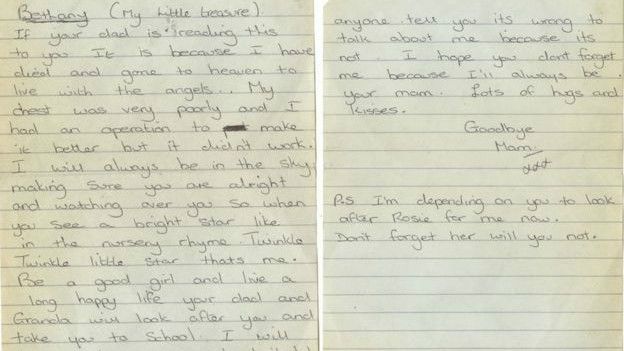 Bethany (My little treasure).
If your dad is reading this
to you It is because I have
died and gone to heaven to
live with the angels... My
chest was very poorly and I
had an operation to make
it better but it didn't work.
I will always be in the sky
making sure you are alright
and watching over you so when
you see a bright star like
in the nursery rhyme Twinkle
Twinkle little star thats me.
Be a good girl and live a
long happy life your dad and
Granda will look after you and
take you to School. I will
anyone tell you its wrong to
talk about me because its
not. I hope you dont forget
me because I'll always be
your mam. Lots of hugs and
kisses.
Goodbye
Mam.
xxx
P.S I'm depending on you to look
after Rosie for me now.
Don't forget her will you not.